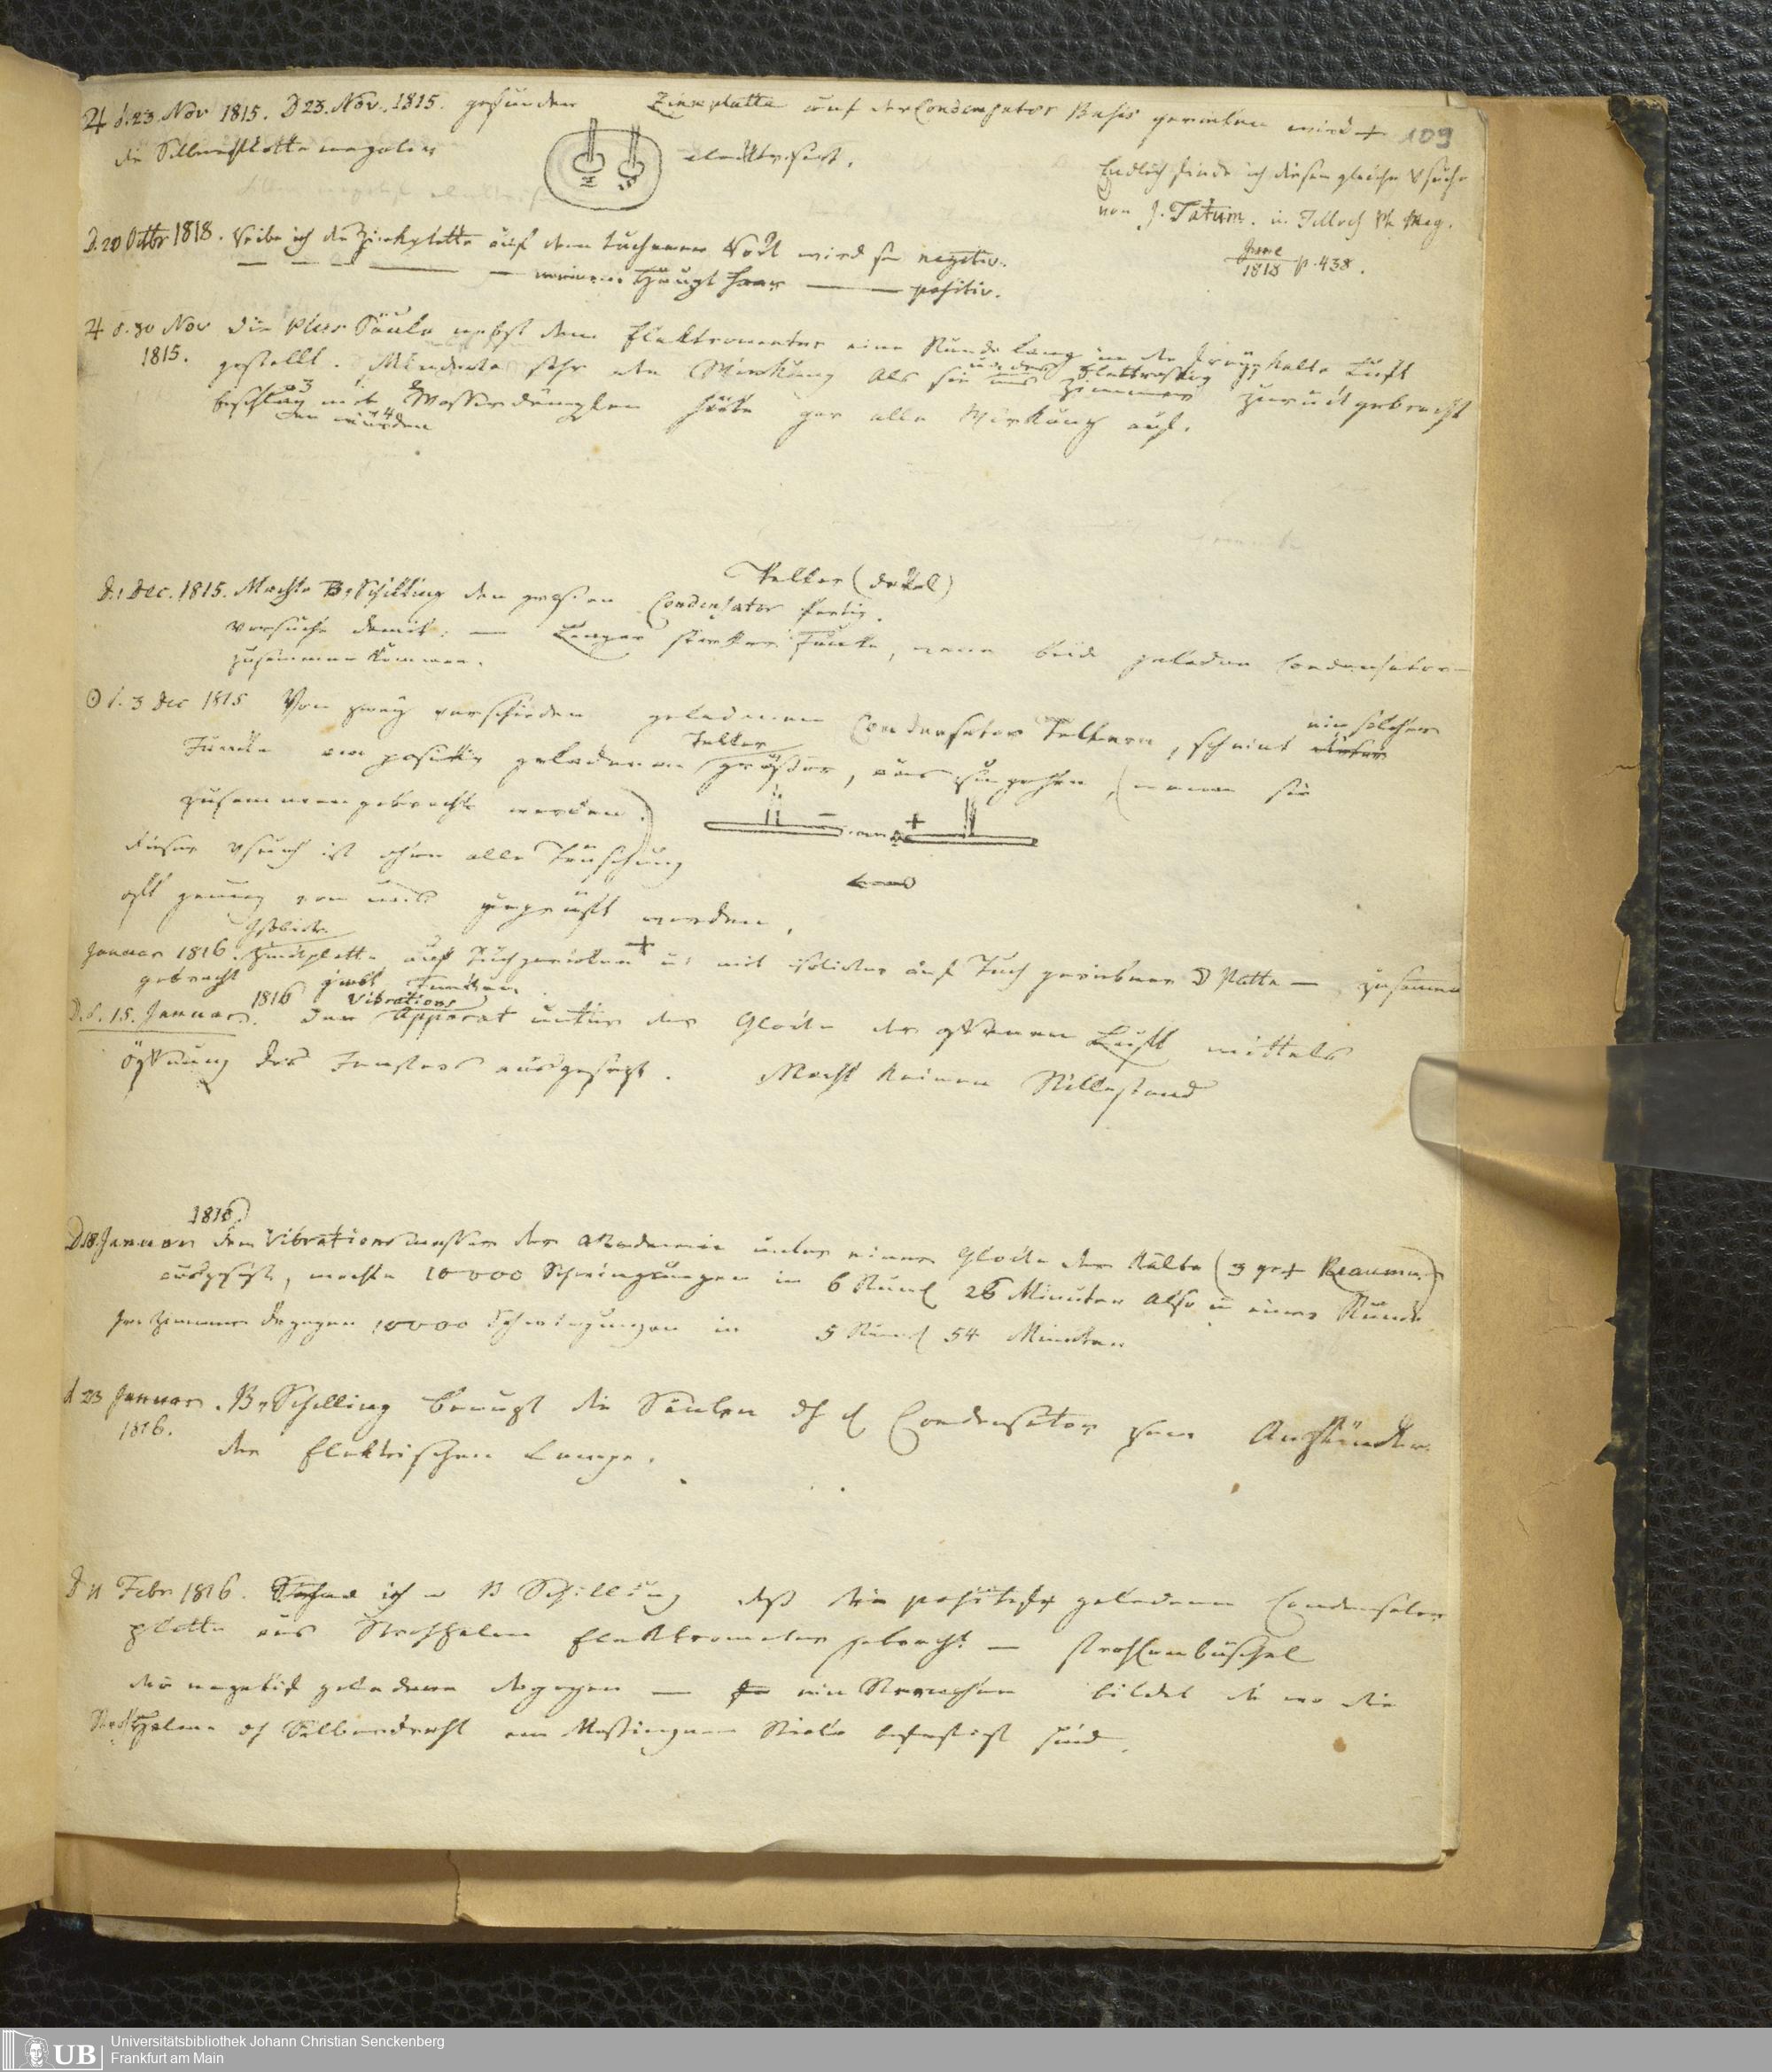 ♃ d. 23 Nov 1815. D 23. Nov. 1815. gefunden Zinkplatte auf der Condensator Basis gerieben wird +
109
die Silberplatte negativ
elecktrisirt.
Endlich finde ich diesen gleichen Vsuch
von J. Tatum. in Tilloch Ph Mag.
June 1818 p. 438.
D. 20 Octbr 1818. Reibe ich die Zinkplatte auf dem tuchenen Rock wird sie negativ.
— — — — — meinem Haupt Haar — — positiv.
♃ d. 30 Nov 1815. die Säule nebst dem Elektrometer eine Stunde lang in die kalte Luft
gestellt. Minderte sehr die Wirkung als sie ins Zimmer zurückgebracht
beschlagen mit Wasserdämpfen hörte gar alle Wirkung auf.
den wurden
Teller (dekel)
D. 1 Dec. 1815. Machte Br Schilling den grossen Condensator fertig.
Versuche damit: — Langer starker Funke, wenn beide geladene Condensatoren
zusammen kommen.
☉ d. 3 Dec 1815 Von zwey verschieden geladenen Condensator Tellern, scheint ein solcher
Funke vom positiv geladenen Teller größer, auszugehen, (wenn sie
zusammengebracht werden.)
− +
dieser Vsuch ist ohne alle Täuschung
oft genug von uns geprüft worden.
Januar 1816. Isolirte Zinkplatte auf Tuch gerieben + u: mit isolirter auf Tuch geriebner Platte — zusammen
gebracht giebt Funken.
D. d. 15. Januar 1816. Den Vibrations Apparat unter der Glocke der offenen Luft mittels
öffnung des Fensters ausgesetzt. Macht keinen Stillestand
1816
D 18. Januar den Vibrationsmesser der Akademie unter einer Glocke der Kälte (3 gr + Reaumur)
ausgesetzt, machte 10000 Schwingungen in 6 Stund 26 Minuten also in einer Stunde
Im Zimmer dagegen 10000 Schwingungen in 5 Stund 54 Minuten
d 23 Januar. Br Schilling benuzt die Säulen Condensator zum Anzünden
1816.
der Elektrischen Lampe.
D 11 Febr 1816. ich u B Schilling daß die positiv geladene Condensator
platte ans Strohhalm Elektrometer gebracht — strahlenbüschel
die negativ geladene dagegen — ein Sternchen bildet die wo die
Strohhalme Silberdraht am Messingnen Stiele befestigt sind.
UB Universitätsbibliothek Johann Christian Senckenberg
Frankfurt am Main